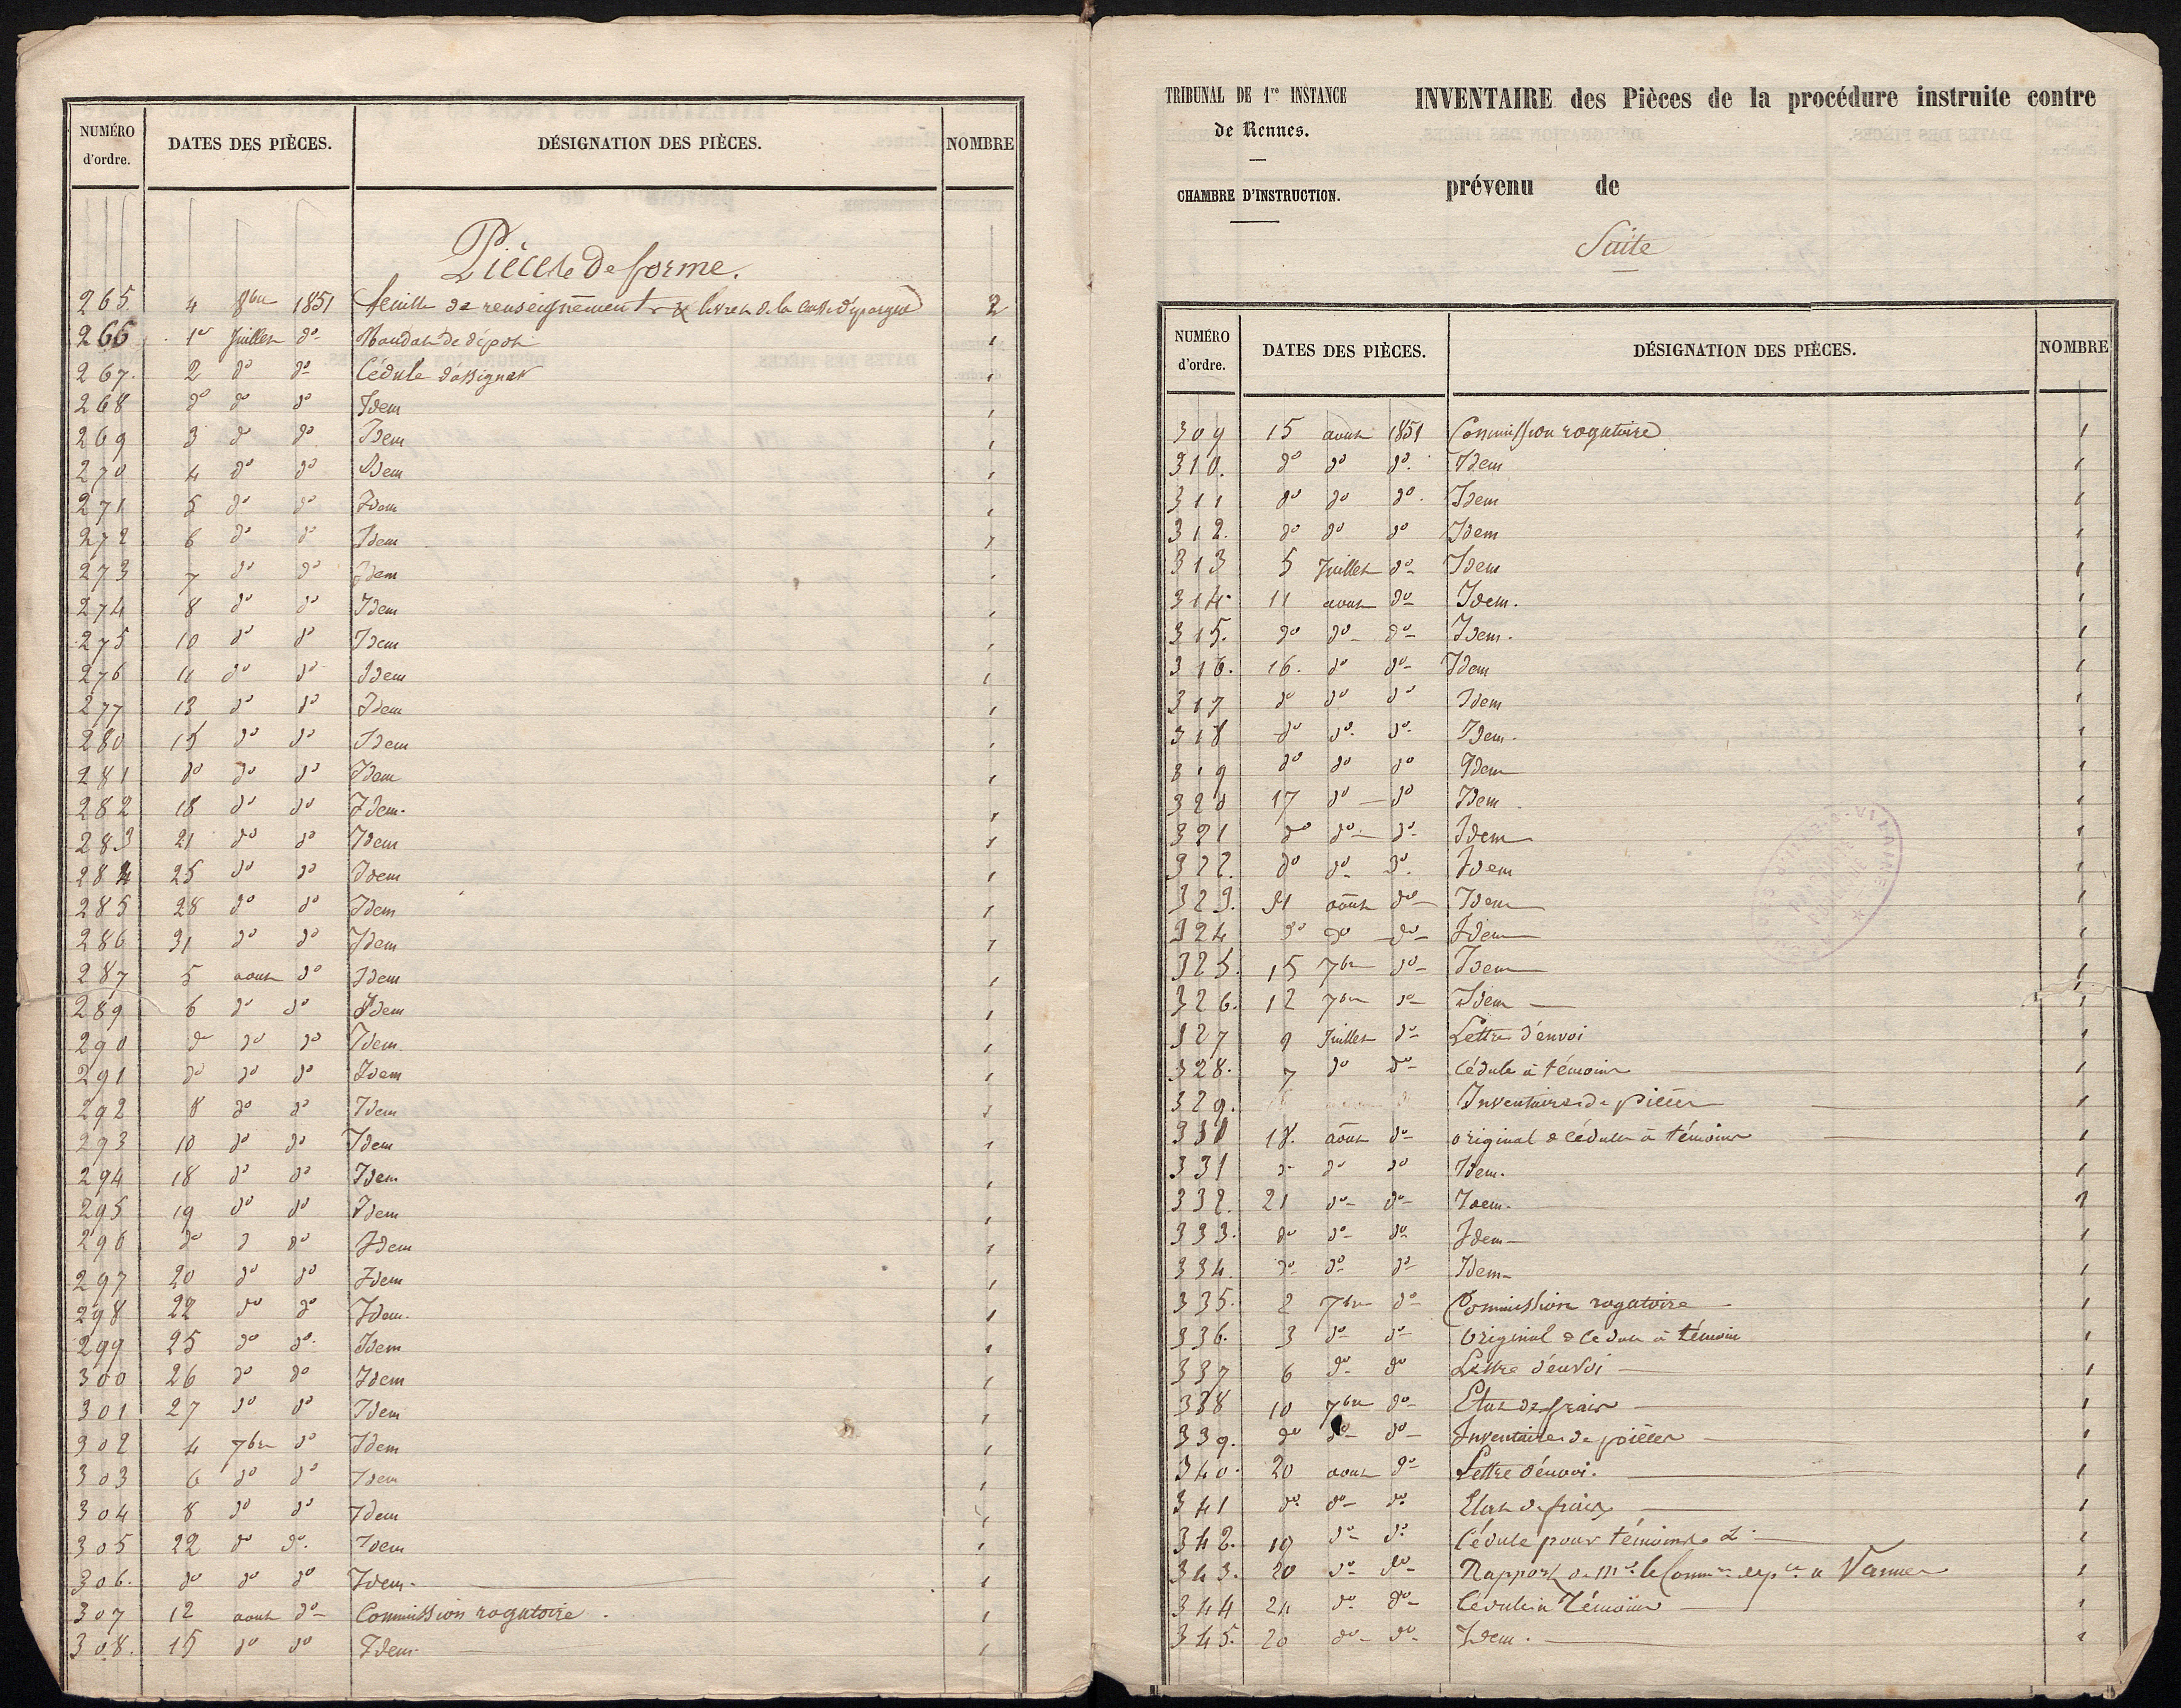 NUMÉRO d'ordre. DATES DES PIÈCES. DÉSIGNATION DES PIÈCES. NOMBRE
Pièces de forme.
265. 4 8bre 1851 feuille de renseignements & livret de la caisse d'épargne 2
266 1er Juillet do Mandat de dépôt 1
267. 2 do do Cédule d'assigner 1
268 do do do Idem 1
269 3 do do Idem 1
270 4 do do Idem 1
271 5 do do Idem 1
272 6 do do Idem 1
273 7 do do Idem 1
274 8 do do Idem 1
275 10 do do Idem 1
276 11 do do Idem 1
277 13 do do Idem 1
280 15 do do Idem 1
281 do do do Idem 1
282 18 do do Idem. 1
283 21 do do Idem 1
284 25 do do Idem 1
285 28 do do Idem 1
286 31 do do Idem 1
287 5 aout do Idem 1
289 6 do do Idem 1
290 do do do Idem 1
291 do do do Idem 1
292 8 do do Idem 1
293 10 do do Idem 1
294 18 do do Idem 1
295 19 do do Idem 1
296 do d do Idem 1
297 20 do do Idem 1
298 22 do do Idem. 1
299 25 do do. Idem 1
300 26 do do Idem 1
301 27 do do Idem 1
302 4 7bre do Idem 1
303 6 do do Idem 1
304 8 do do Idem 1
305 22 do do. Idem 1
306. do do do Idem. 1
307 12 aout do Commission rogatoire. 1
308. 15 do do Idem 1
TRIBUNAL DE 1re INSTANCE
de Rennes.
CHAMBRE D'INSTRUCTION.
INVENTAIRE des Pièces de la procédure instruite contre
prévenu de
Suite
NUMÉRO d'ordre. DATES DES PIÈCES. DÉSIGNATION DES PIÈCES. NOMBRE
309 15 aout 1851 Commission rogatoire 1
310. do do do. Idem 1
311 do do do. Idem 1
312. do do do Idem 1
313 5 Juillet do Idem 1
314. 11 aout do Idem. 1
315. do do do Idem. 1
316. 16. do do Idem 1
317 do do do Idem 1
318 do do. do. Idem. 1
319 do do do Idem 1
320 17 do do Idem. 1
321 do do do Idem 1
322. do do do. Idem 1
323. 31 aout do Idem 1
324 do do do Idem 1
325. 15 7bre do Idem 1
326. 12 7bre do Idem 1
327 9 Juillet do Lettre d'envoi 1
328. 7 do do cédule à témoins 1
329. Inventaire de pièces 1
330 18. aout do original & cédule à témoins 1
331 do do do Idem. 1
332. 21 do do Idem. 1
333. do do do Idem 1
334. do do do Idem 1
335. 2 7bre do Commission rogatoire 1
336. 3 do do Original & cedule à témoin 1
337 6 do do Lettre d'envoi 1
338 10 7bre do Etat de frais 1
339. do do do Inventaire de pièces 1
340. 20 aout do Lettre d'envoi. 1
341 do do do Etat de frais 1
342. 19 do do Cédule pour témoins 1
343. 20 do do Rapport de Mr. le Commre de pce a Vannes 1
344 24 do do Cédule à témoins 1
345. 20 do do Idem. 1